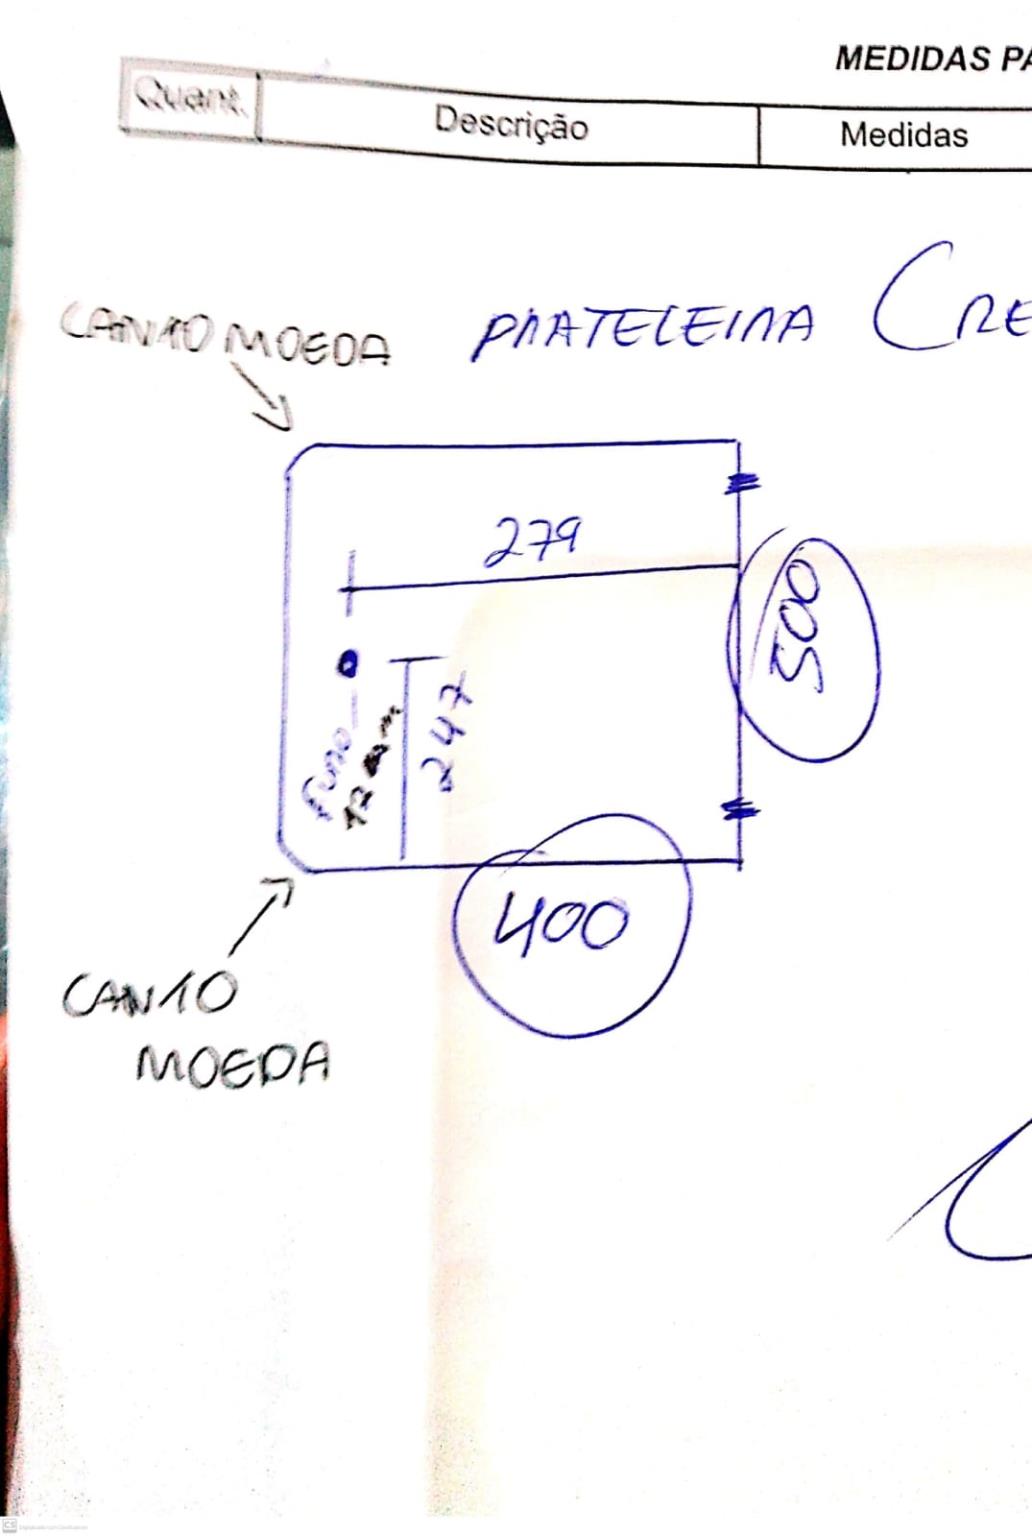 MEDIDAS PA
Quant. Descrição Medidas
CANTO MOEDA
PRATELEIRA (RE
279
500
247
FURO
12 mm
400
CANTO
MOEDA
CS